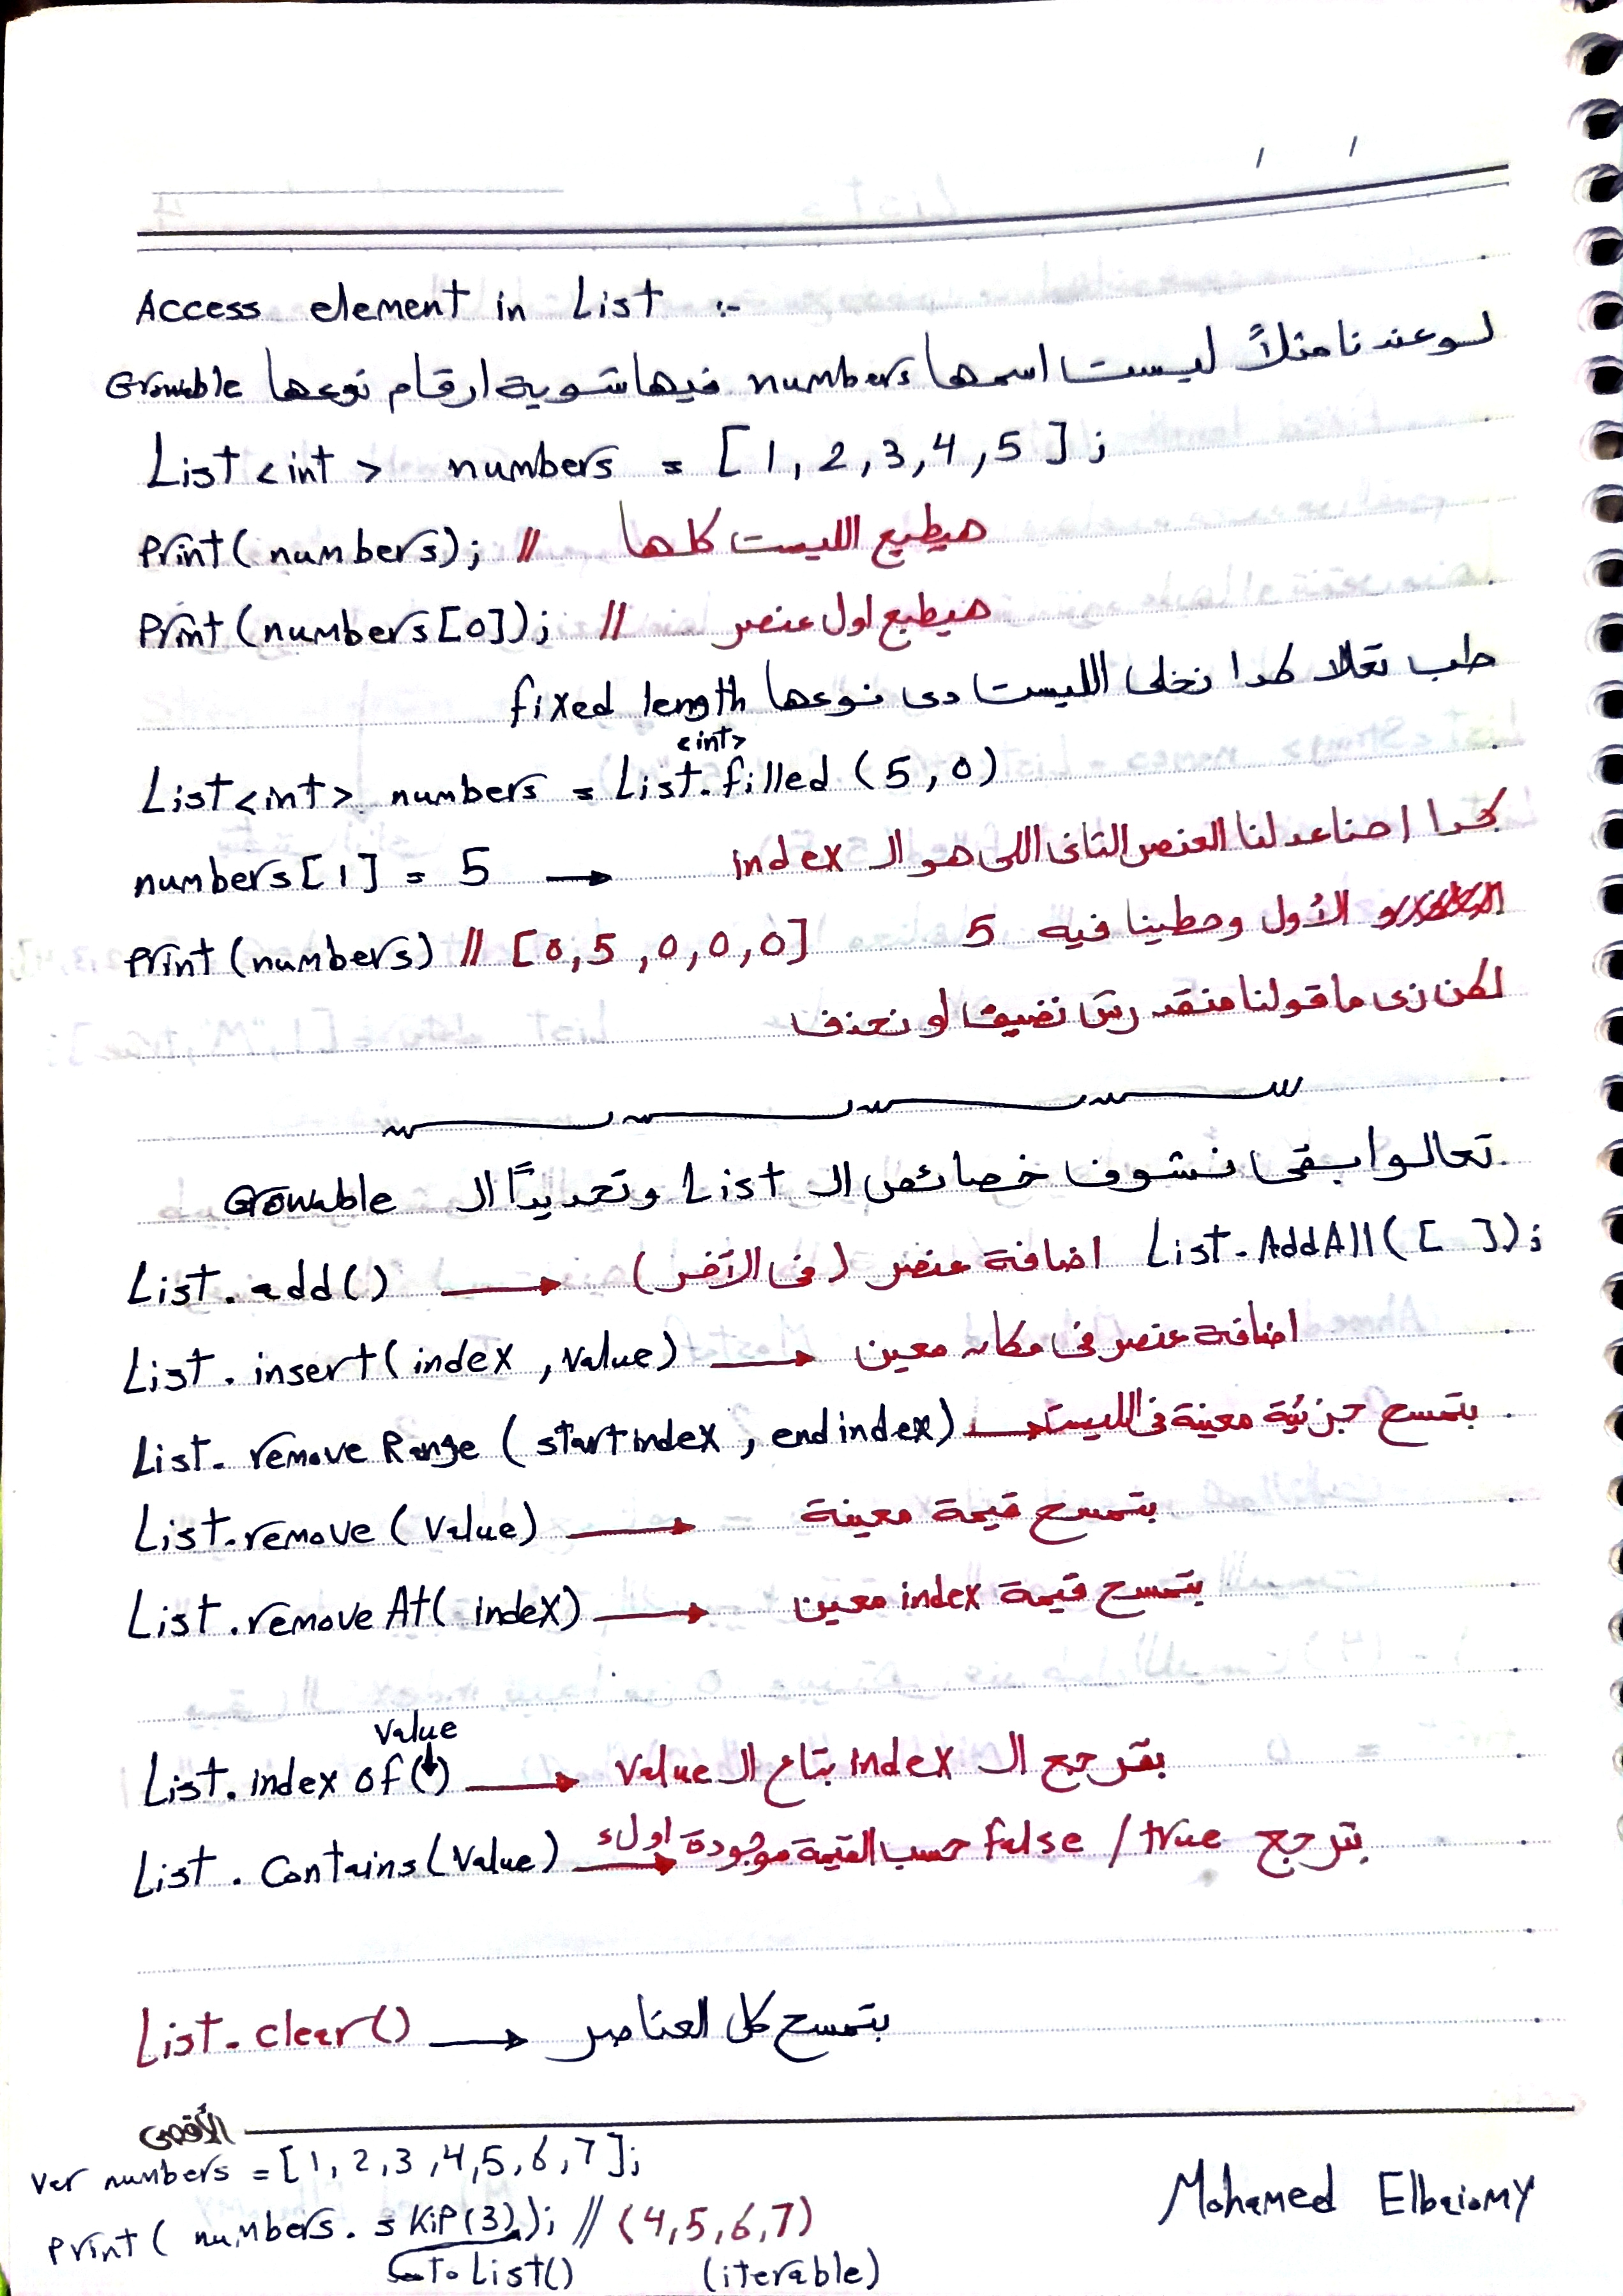 Access element in List :-
لو عندنا مثلاً ليست اسمها numbers فيها شوية ارقام نوعها Growable
List <int> numbers = [1, 2, 3, 4, 5];
Print(numbers); // هيطبع الليست كلها
Print(numbers[0]); // هيطبع اول عنصر
طب تعالا كدا نخلى الليست دى نوعها fixed length
<int>
List<int> numbers = List.filled (5, 0)
numbers[1] = 5 → كدا احنا عدلنا العنصر التانى اللى هو ال index
الأول وحطينا فيه 5
Print(numbers) // [0,5,0,0,0]
لكن زى ما قولنا منقدرش نضيف او نحذف
تعالوا بقى نشوف خصائص ال List وتحديداً ال Growable
List.add() → اضافة عنصر (فى الآخر) List.AddAll([ ]);
List.insert(index, value) → اضافة عنصر فى مكان معين
List.remove Range (startindex, endindex) → بتمسح جزئية معينة فى الليست
List.remove (value) → بتمسح قيمة معينة
List.remove At(index) → بتمسح قيمة index معين
value
List.index of() → بترجع ال index بتاع ال value
List.Contains(value) → بترجع true / false حسب القيمة موجودة اولاء
List.clear() → بتمسح كل العناصر
الأقصى
Var numbers = [1, 2, 3, 4, 5, 6, 7];
Print( numbers.skip(3)); // (4,5,6,7)
to List() (iterable)
Mohamed Elbaiomy